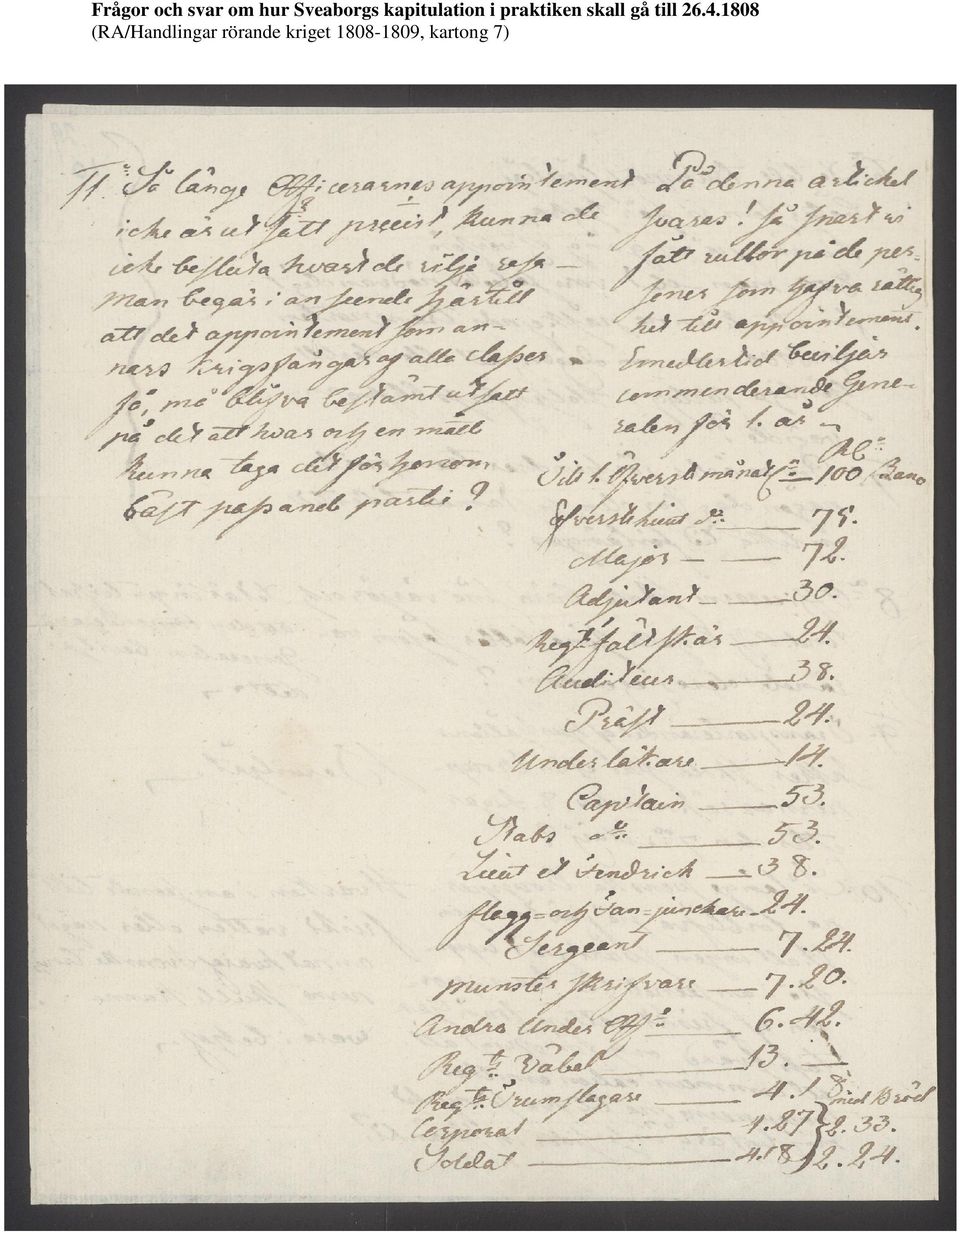 Frågor och svar om hur Sveaborgs kapitulation i praktiken skall gå till 26.4.1808
(RA/Handlingar rörande kriget 1808-1809, kartong 7)
11. Så länge Officerarnes appointement
icke är utsatt precist, kunna de
icke besluta hvart de vilje resa –
Man begär i anseende härtill
att det appointement som an-
nars Krigsfångar af alla classer
få, må blifva bestämt utsatt
på det att hvar och en måtte
kunna taga det för honom
bäst passande partie?
På denna artickel
svaras! så snart vi
fått rullor på de per-
soner som hafva rättig
het till appointement.
Emedlertid beviljar
commenderande Gene-
ralen för 1. år
Till 1. Öfverste månatl. – 100 Banco
Öfverstelieut do – 75.
Major – 72.
Adjutant – 30.
Regts fältskär – 24.
Auditeur – 38.
Präst – 24.
Underläkare – 14.
Capitain – 53.
Stabs do – 53.
Lieut et Fendrich – 38.
flagg- och Fan-junckare – 24.
Sergeant – 7.24.
Munster skrifvare – 7.20.
Andra Under Off – 6.42.
Regts Väbel – 13. –
Regts Trumslagare – 4.1 med Bröd
Corporal – 4.27 } 2.33.
Soldat – 4.18 } 2.24.